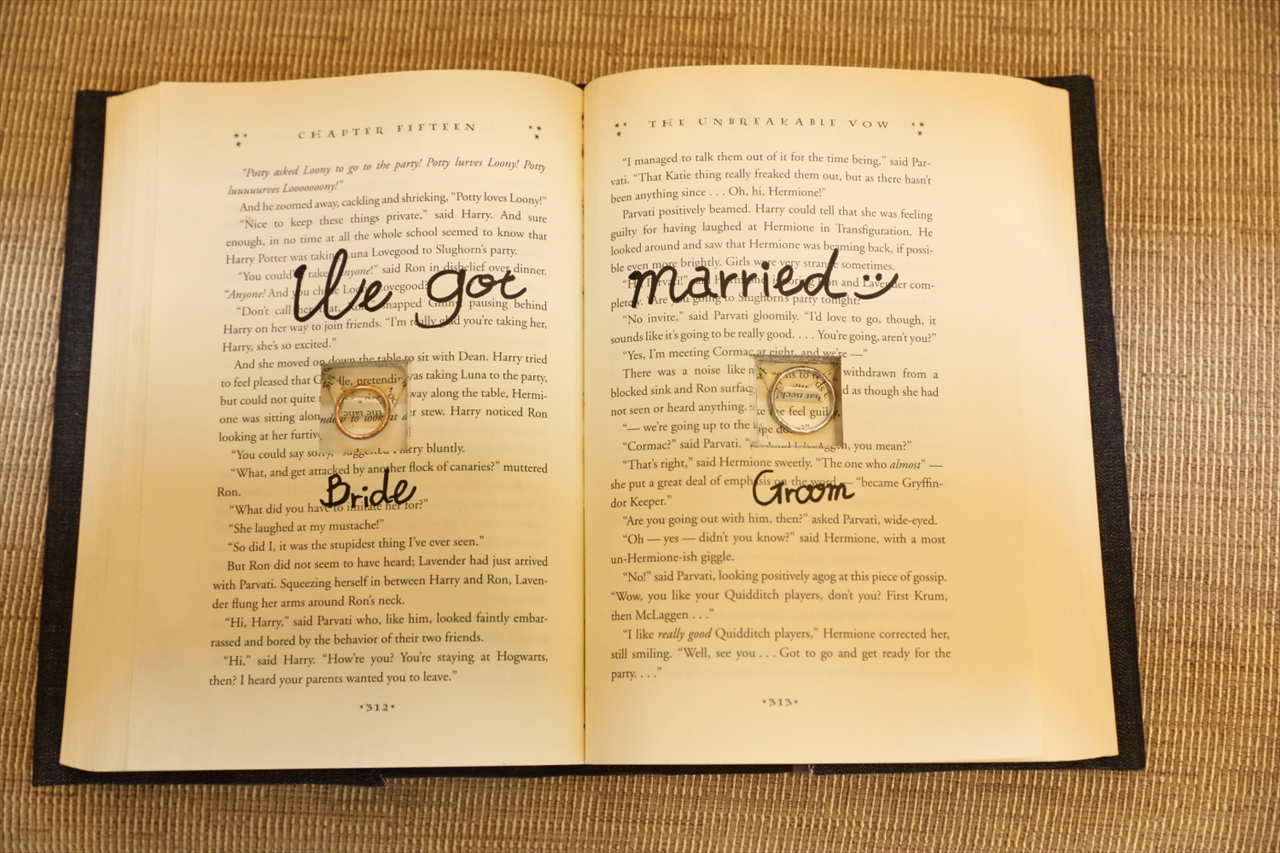 CHAPTER FIFTEEN
"Potty asked Loony to go to the party! Potty lurves Loony! Potty
luuuuurves Looooooony!"
And he zoomed away, cackling and shrieking, "Potty loves Loony!"
"Nice to keep these things private," said Harry. And sure
enough, in no time at all the whole school seemed to know that
Harry Potter was taking Luna Lovegood to Slughorn's party.
"You could've taken anyone!" said Ron in disbelief over dinner.
"Anyone! And you chose Loony Lovegood?"
We got
"Don't call her that, snapped pausing behind
Harry on her way to join friends. "I'm really glad you're taking her,
Harry, she's so excited."
And she moved on down the table to sit with Dean. Harry tried
to feel pleased that was taking Luna to the party,
but could not quite way along the table, Hermi-
one was sitting alone stew. Harry noticed Ron
looking at her furtiv
"You could say sorry," suggested Harry bluntly.
"What, and get attacked by another flock of canaries?" muttered
Ron.
Bride
"What did you have to imitate her for?"
"She laughed at my mustache!"
"So did I, it was the stupidest thing I've ever seen."
But Ron did not seem to have heard; Lavender had just arrived
with Parvati. Squeezing herself in between Harry and Ron, Laven-
der flung her arms around Ron's neck.
"Hi, Harry," said Parvati who, like him, looked faintly embar-
rassed and bored by the behavior of their two friends.
"Hi," said Harry. "How're you? You're staying at Hogwarts,
then? I heard your parents wanted you to leave."
312
THE UNBREAKABLE VOW
"I managed to talk them out of it for the time being," said Par-
vati. "That Katie thing really freaked them out, but as there hasn't
been anything since . . . Oh, hi, Hermione!"
Parvati positively beamed. Harry could tell that she was feeling
guilty for having laughed at Hermione in Transfiguration. He
looked around and saw that Hermione was beaming back, if possi-
ble even more brightly. Girls were very strange sometimes.
married
and Lavender com-
pletely. "Are you going to Slughorn's party tonight?"
"No invite," said Parvati gloomily. "I'd love to go, though, it
sounds like it's going to be really good. . . . You're going, aren't you?"
"Yes, I'm meeting Cormac at eight, and we're —"
There was a noise like withdrawn from a
blocked sink and Ron surfac as though she had
not seen or heard anything.
"— we're going up to the
"Cormac?" said Parvati. you mean?"
"That's right," said Hermione sweetly. "The one who almost" —
she put a great deal of emphasis on the word — "became Gryffin-
dor Keeper."
Groom
"Are you going out with him, then?" asked Parvati, wide-eyed.
"Oh — yes — didn't you know?" said Hermione, with a most
un-Hermione-ish giggle.
"No!" said Parvati, looking positively agog at this piece of gossip.
"Wow, you like your Quidditch players, don't you? First Krum,
then McLaggen . . ."
"I like really good Quidditch players," Hermione corrected her,
still smiling. "Well, see you . . . Got to go and get ready for the
party. . . ."
313